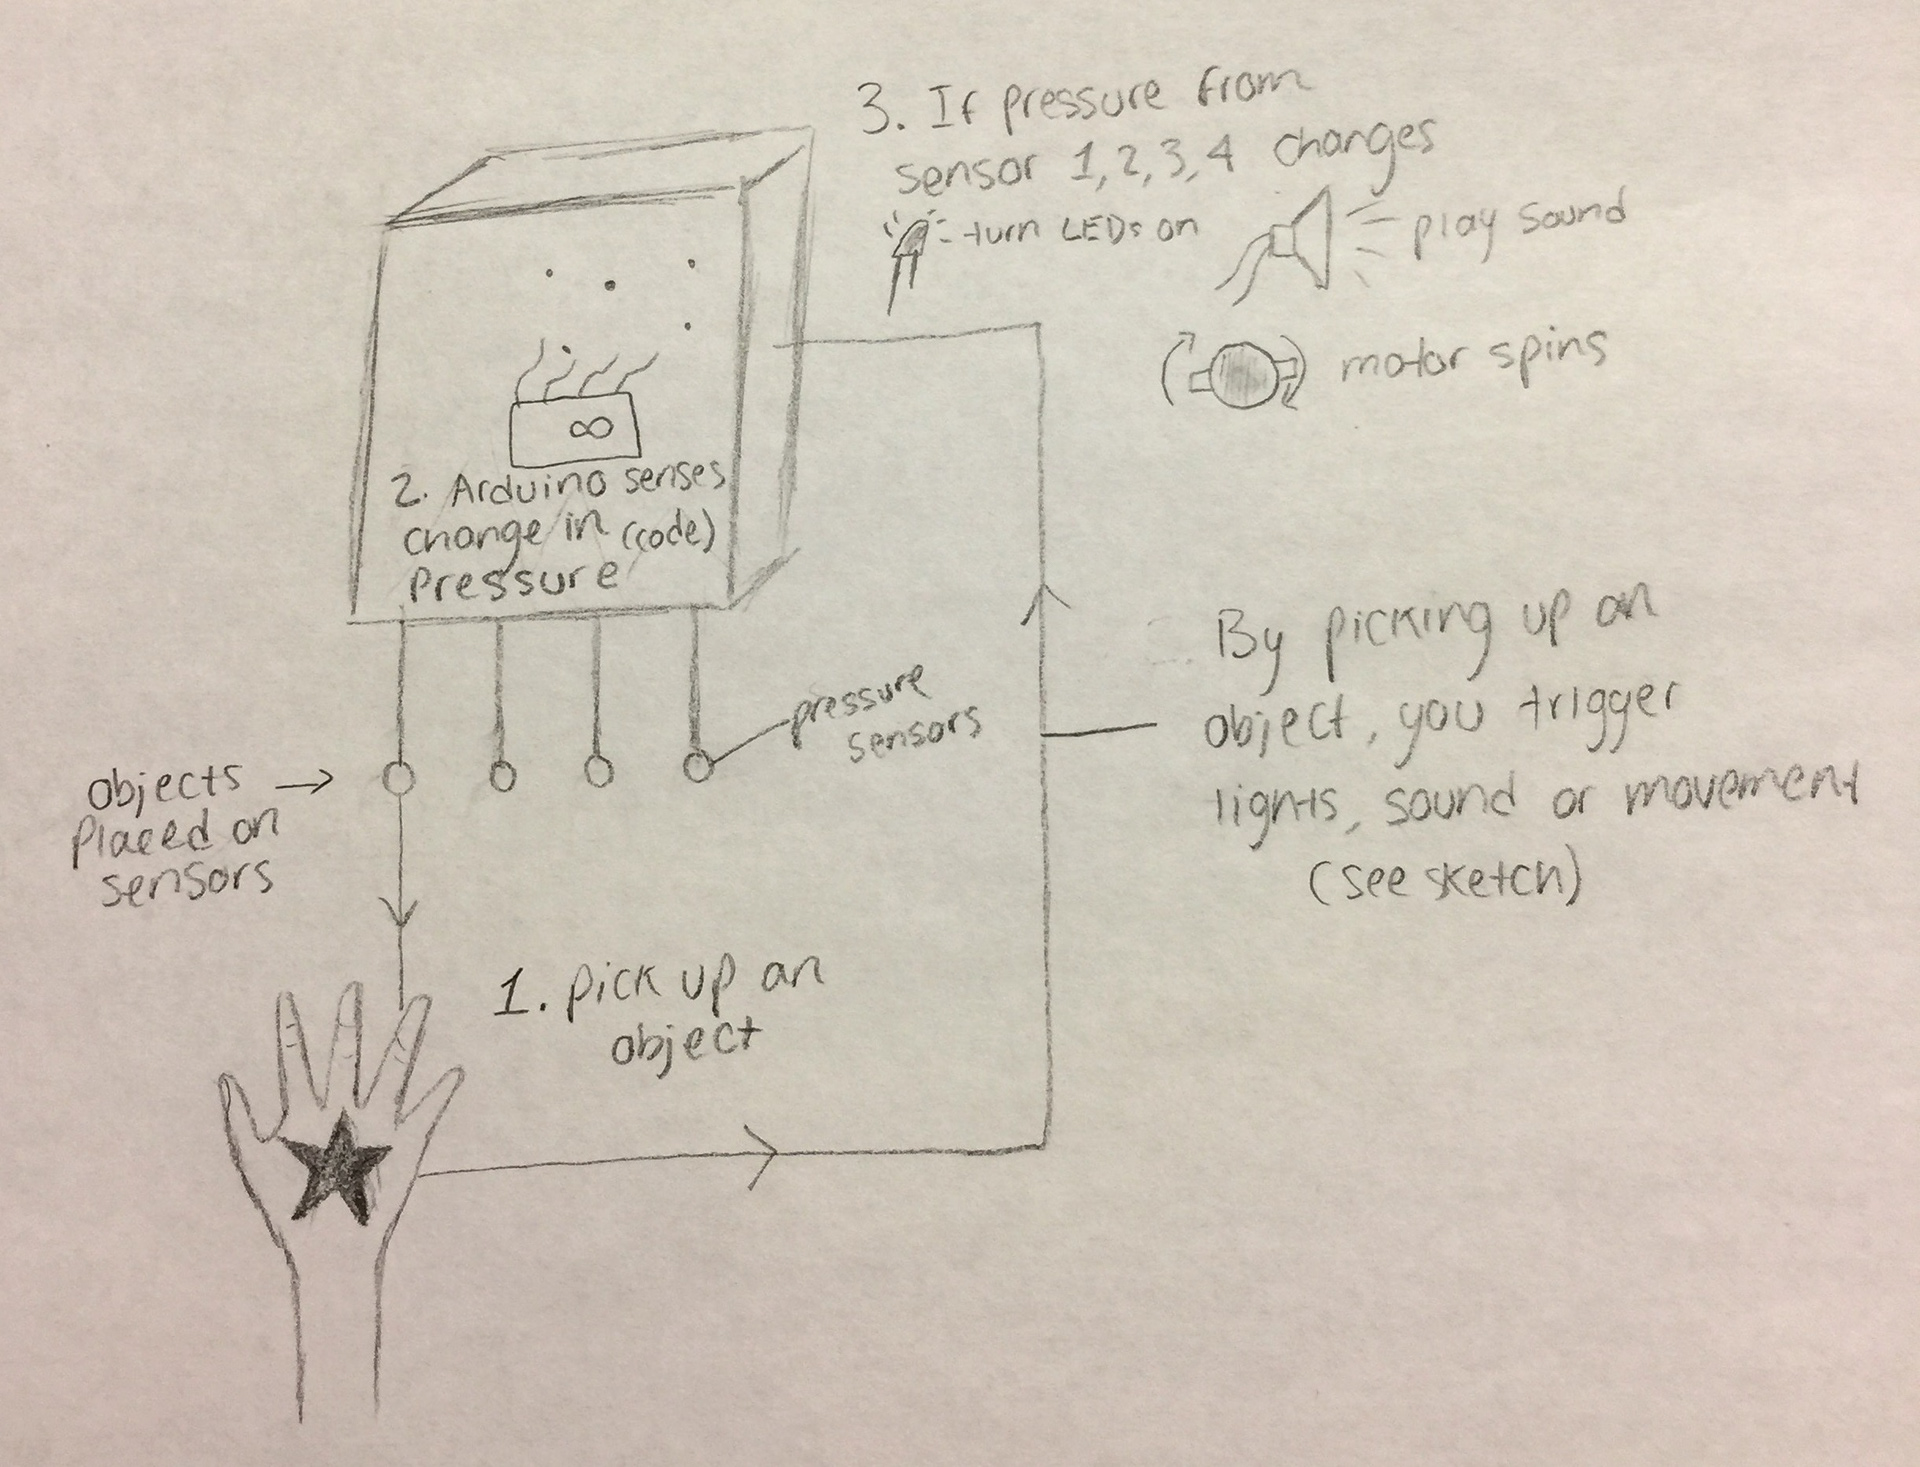 3. If pressure from
sensor 1,2,3,4 changes
turn LEDs on
play sound
motor spins
2. Arduino senses
change in (code)
Pressure
pressure
sensors
objects
Placed on
sensors
By picking up an
object, you trigger
lights, sound or movement
(see sketch)
1. pick up an
object